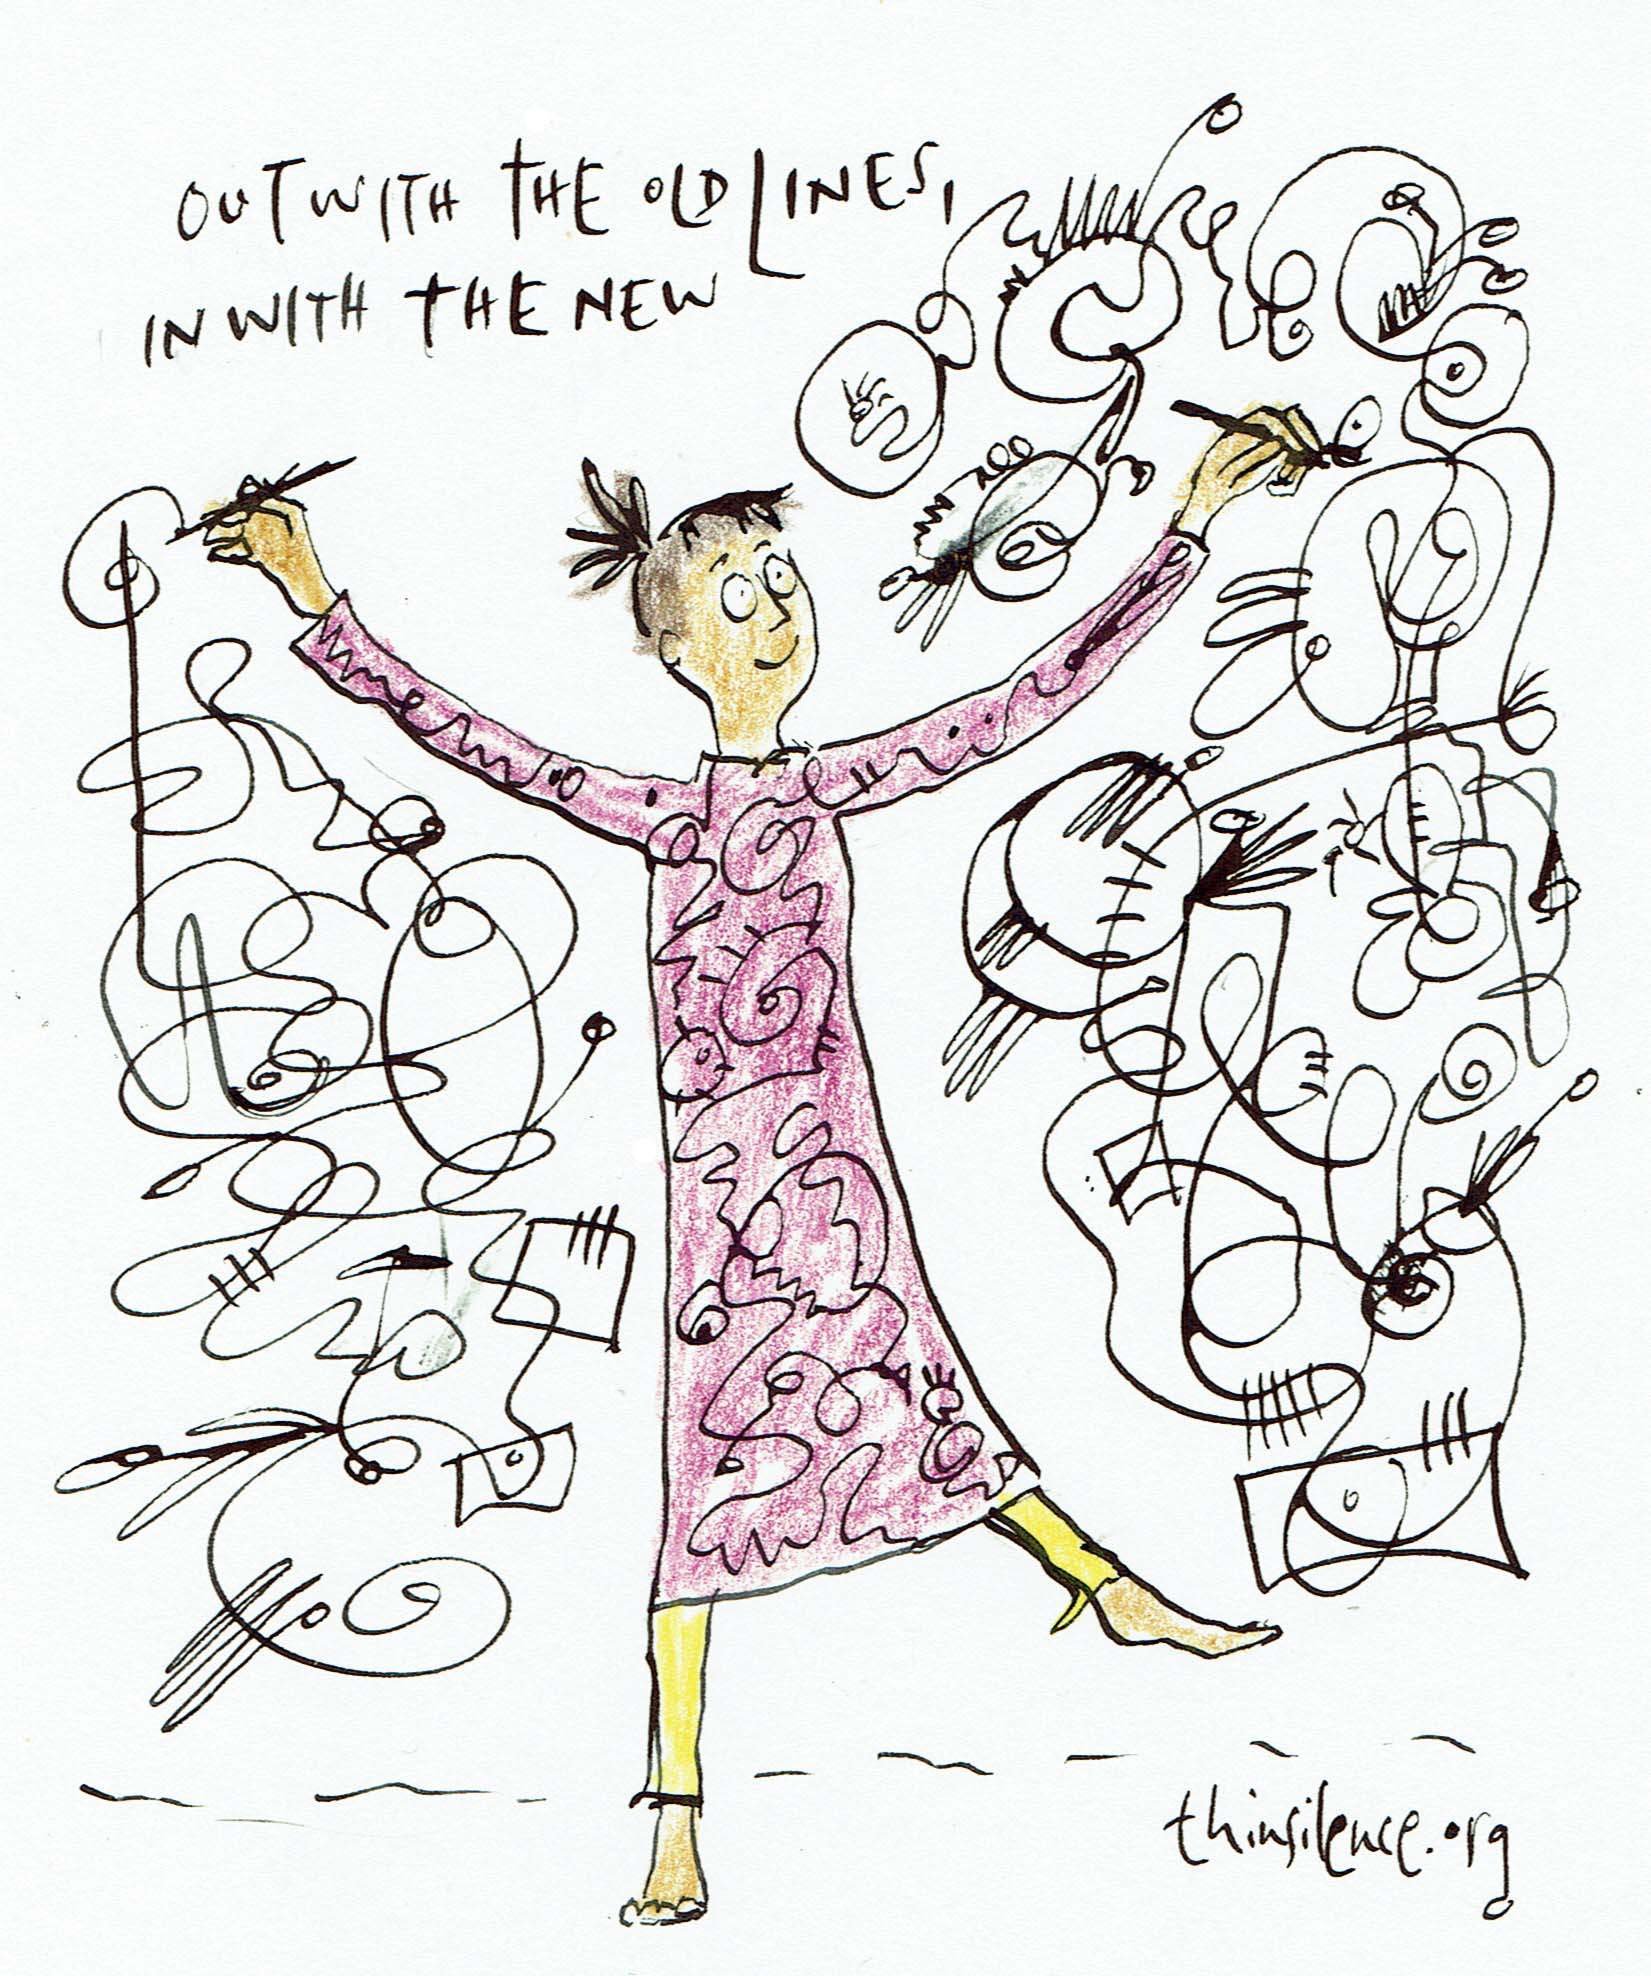 OUT WITH THE OLD LINES,
IN WITH THE NEW
thinsilence.org